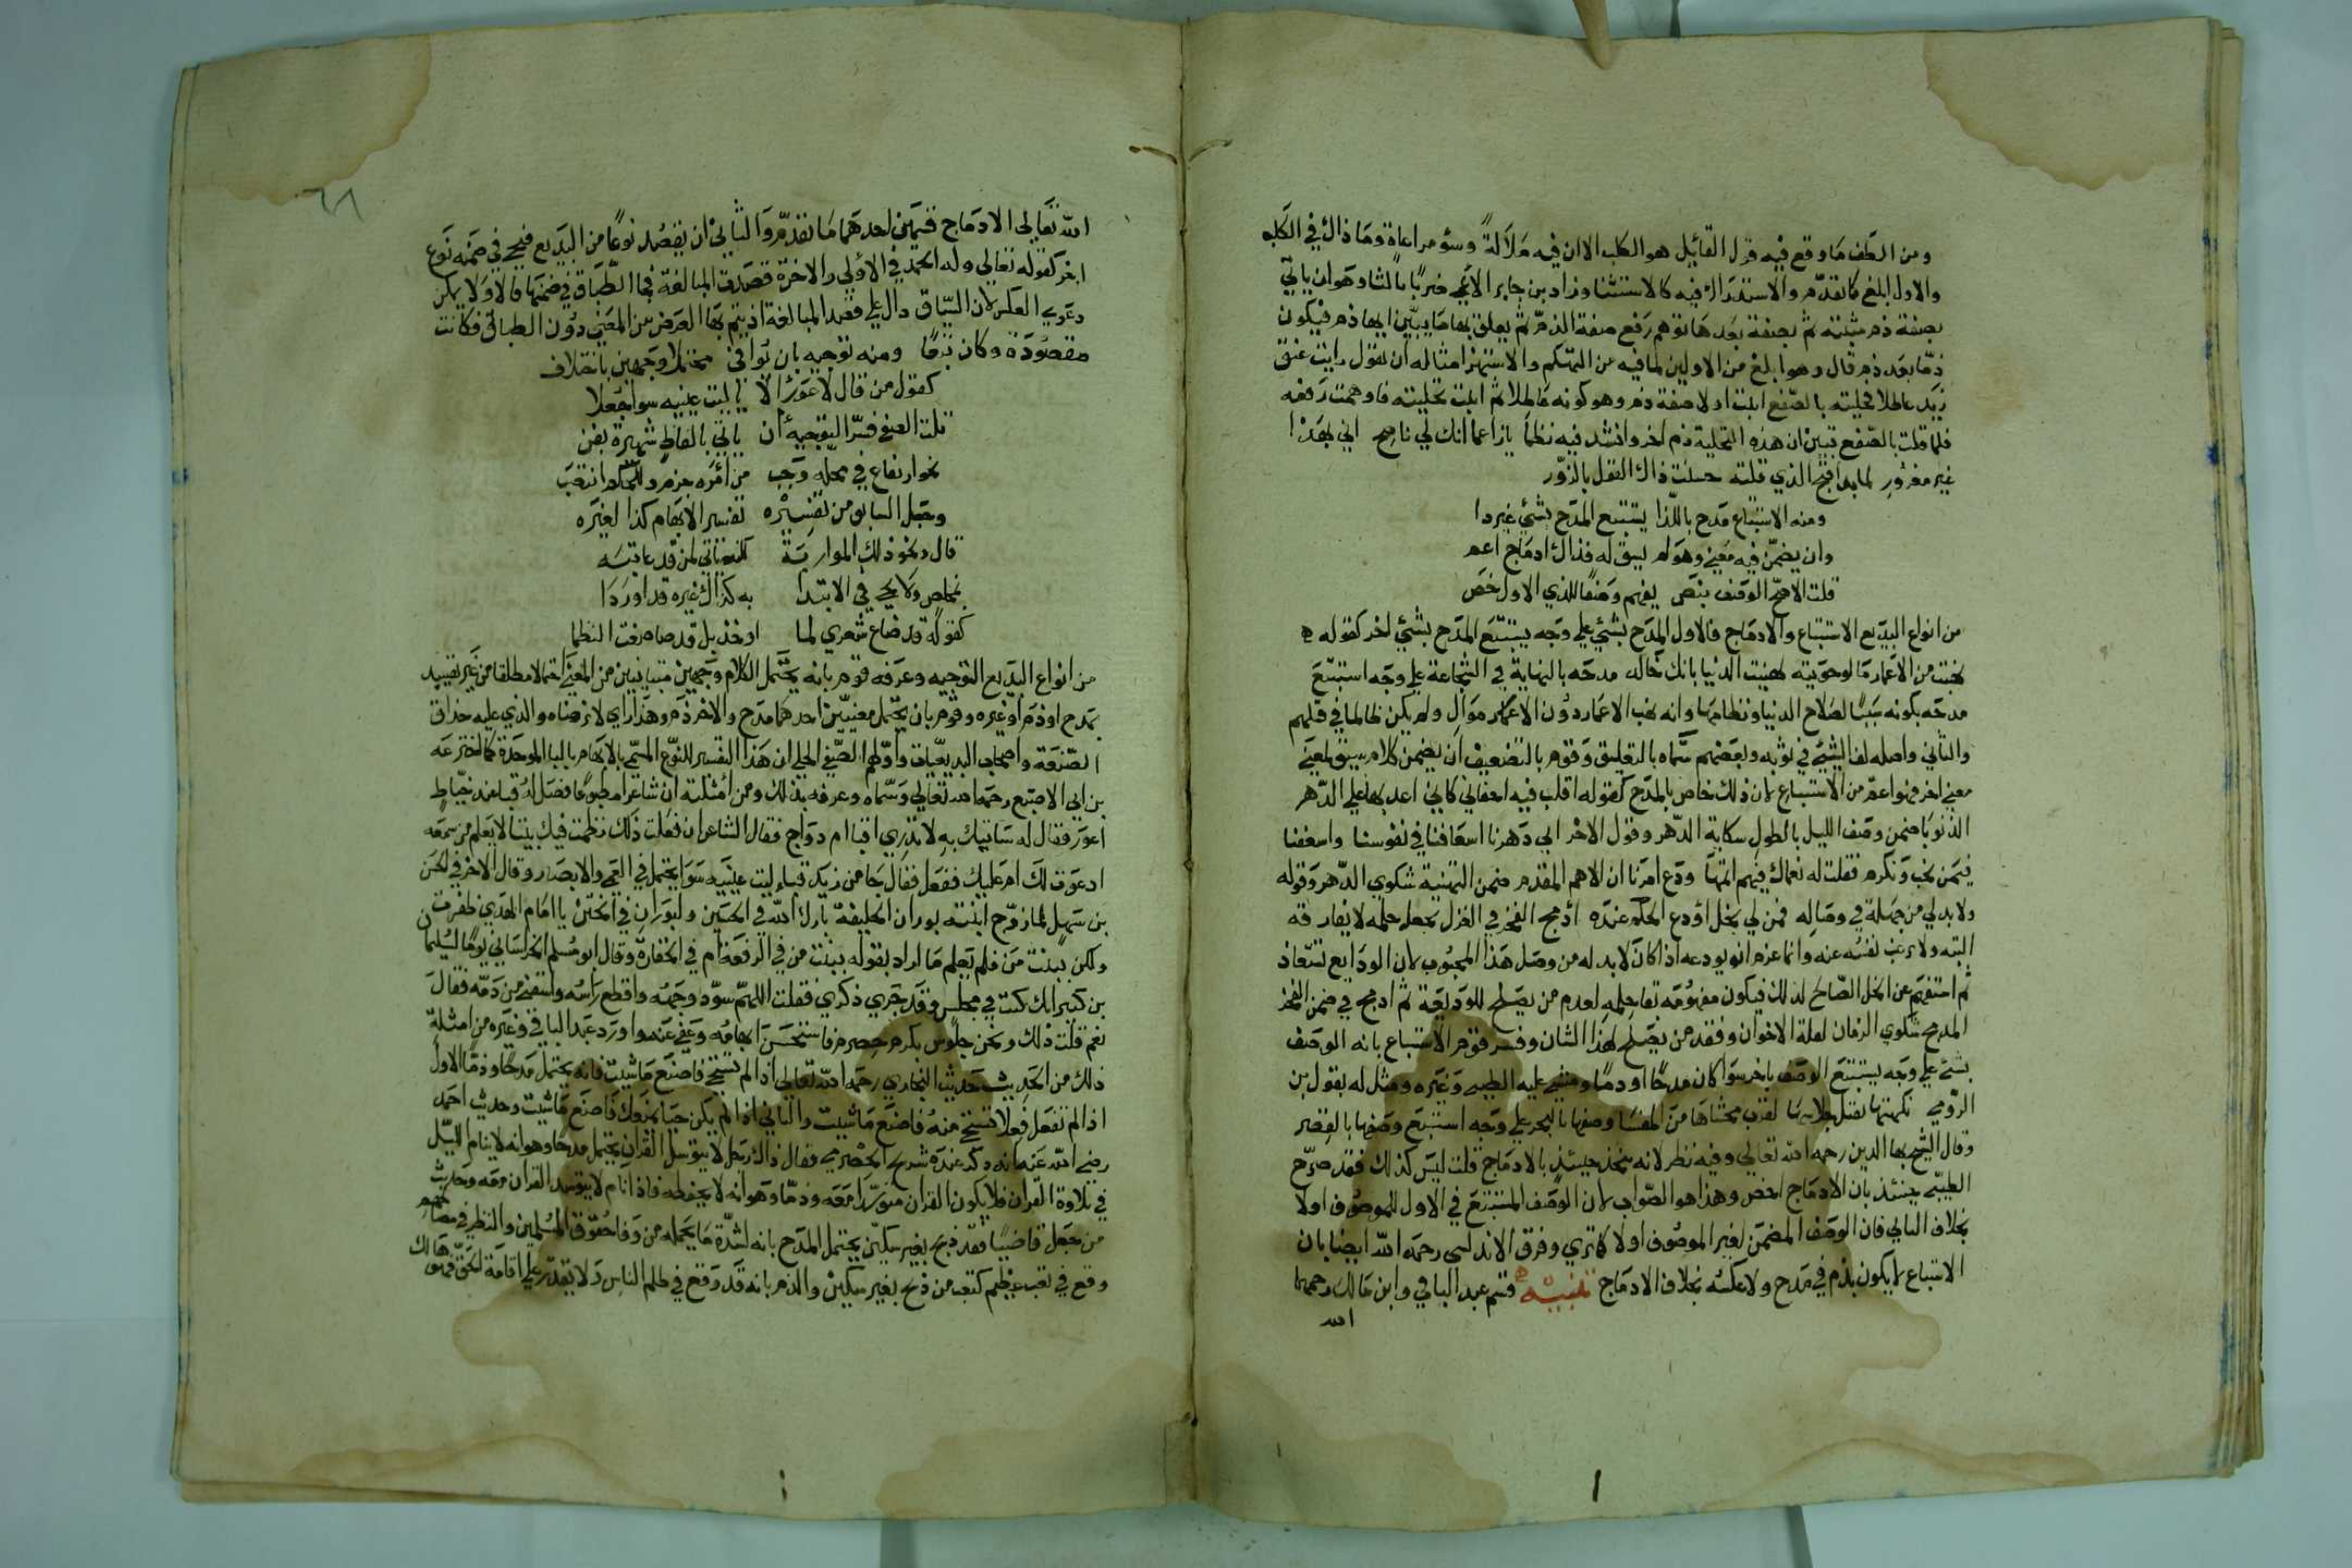 ومن الطف ما وقع فيه قول القايل هو الكلب الا ان فيه ملالة وسؤ مراعاة وما ذاك في الكلب
والاول ابلغ كما تقدم والاستدراك فيه كالاستثنا وزاد بن جابر الاعمى ضربا ثالثا وهو ان ياتي
بصفة ذم مثبتة ثم بصفة بعدها توهم رفع صفة الذم ثم يعلق بها ما يبين انها ذم فيكون
ذما بعد ذم قال وهو ابلغ من الاولين لما فيه من التهكم والاستهزا مثاله ان تقول رايت عنق
زيد عاطلا فحليته بالصفع اثبت اولا صفة ذم وهو كونه عاطلا ثم اثبت تحليته فاوهمت رفعه
فلما قلت بالصفع تبين ان هذه التحلية ذم اخر وانشد فيه نظما يا زاعما انك لي ناصح اني بهذا
غير مغرور لما بدا قبح الذي قلته حسنت ذاك القول بالزور
ومنه الاستتباع مدح باللذا يستتبع المدح بشئ غير ذا
وان يضمن فيه معنى وهو لم يسق له فذاك ادماج اعم
قلت الاصح الوصف بنص يفهم وصفا للذي الاول خص
من انواع البديع الاستتباع والادماج فالاول المدح بشئ على وجه يستتبع المدح بشئ اخر كقوله
نهبت من الاعمار ما لو حويته لهنيت الدنيا بانك خالد مدحه بالنهاية في الشجاعة على وجه استتبع
مدحه بكونه سببا لصلاح الدنيا ونظامها وانه نهب الاعمار دون الاموال ولم يكن ظالما في قتلهم
والثاني واصله لف الشئ في ثوبه وبعضهم سماه بالتعليق وقوم بالتضعيف ان يضمن كلام سيق لمعنى
معنى اخر فهو اعم من الاستتباع لان ذلك خاص بالمدح كقوله اقلب فيه اجفاني كاني اعد بها على الدهر
الذنوبا ضمن وصف الليل بالطول شكاية الدهر وقول الاخر ابى دهرنا اسعافنا في نفوسنا واسعفنا
فيمن نحب ونكرم فقلت له نعماك فيهم اتمها ودع امرنا ان الاهم المقدم ضمن التهنية شكوى الدهر وقوله
ولا بد لي من جهلة في وصاله فمن لي بخل اودع الحلم عنده ادمج الفخر في الغزل بجعل حلمه لا يفارقه
البته ولا رغب نفسه عنه وانما عزم انه يودعه اذ كان لا بد له من وصل هذا المحبوب لان الودايع تستعاد
ثم استفهم عن الخل الصالح لذلك فيكون مفهومه لعدم من يصلح للوديعة ثم ادمج في ضمن الفخر
المدمج شكوى الزمان لقلة الاخوان وفقد من يصلح لهذا الشان وفسر قوم الاستتباع بانه الوصف
بشئ على وجه يستتبع الوصف باخر سوا كان مدحا او ذما ومشى عليه الطيبي وغيره ومثل له بقول بن
الرومي نكهتها تقتل جلاسها لقرب محشاها من المفسا وصفها بالبخر على وجه استتبع وصفها بالقصر
وقال الشيخ بها الدين رحمه الله تعالى وفيه نظر لانه يتحد حينئذ بالادماج قلت ليس كذلك فقد صرح
الطيبي حينئذ بان الادماج اخص وهذا هو الصواب لان الوصف المستتبع في الاول للموصوف اولا
بخلاف الثاني فان الوصف المضمن لغير الموصوف اولا كما ترى وفرق الاندلسي رحمه الله ايضا بان
الاستتباع لا يكون بذم في مدح ولا عكسه بخلاف الادماج تنبيه قسم عبد الباقي وابن مالك رحمهما
الله
٦٨
الله تعالى الادماج قسمين احدهما ما تقدم والثاني ان يقصد نوعا من البديع فيجي في ضمنه نوع
اخر كقوله تعالى وله الحمد في الاولى والاخرة قصدت المبالغة فجا الطباق في ضمنها قال ولا يمكن
دعوى العكس لان السياق دال على قصد المبالغة اذ يتم بها الغرض من المعنى دون الطباق فكانت
مقصودة وكان تبعا ومنه توجيه بان توافي محتملا وجهين باختلاف
كقول من قال لاعور الا يا ليت عينيه سوا جعلا
قلت الصفي فسر التوجيه ان ياتي بالفاظ شهيرة بفن
نحو ارتفاع في محله وجب من امره جزم وللحكم انتصب
وجعل السابق من تفسيره تفسير الابهام كذا لغيره
قال ونحو ذلك المواربة لكنه تاتي لمن قد عاتبه
بمخلص ولا يجي في الابتدا به كذاك غيره قد اوردا
كقوله قد ضاع شعري لما اوخذ بل قد ضا صرفت النظما
من انواع البديع التوجيه وعرفه قوم بانه يحتمل الكلام وجهين متباينين من المعنى احتمالا مطلقا من غير تقييد
بمدح او ذم او غيره وقوم بان يحتمل معنيين احدهما مدح والاخر ذم وهذا راي لا نرضاه والذي عليه حذاق
الصنعة واصحاب البديعيات واولهم الصفي الحلي ان هذا التفسير للنوع المسمى بالابهام بالبا الموحدة كما اخترعه
بن ابي الاصبع رحمه الله تعالى وسماه وعرفه بذلك ومن امثلته ان شاعرا مطبوعا فصل له قبا عند خياط
اعور فقال له ساتيك به لا تدري اقبا ام دواج فقال الشاعر ان فعلت ذلك نظمت فيك بيتا لا يعلم من سمعه
ادعوت لك ام عليك ففعل فقال جا من زيد قباء ليت عينيه سوا يحتمل في العمى والابصار وقال الاخر في الحسن
بن سهل لما زوج ابنته بوران الخليفة بارك الله في الحسن ولبوران في الختن يا امام الهدى ظفرت
ولكن ببنت من فلم يعلم ما اراد بقوله ببنت من في الرفعة ام في الحقارة وقال ابو مسلم الخراساني يوما لسليمان
بن كثير انك كنت في مجلس وقد جرى ذكري فقلت اللهم سود وجهه واقطع راسه واسقني من دمه فقال
نعم قلت ذلك ونحن جلوس بكرم حصرم فاستحسن ابهامه وعفى عنه واورد عبد الباقي وغيره من امثلة
ذلك من الحديث حديث البخاري رحمه الله تعالى اذا لم تستحي فاصنع ما شئت فانه يحتمل مدحا وذما الاول
اذا لم تفعل فعلا تستحي منه فاصنع ما شئت والثاني اذا لم يكن حيا يمنعك فاصنع ما شئت وحديث احمد
رضي الله عنه انه ذكر عنده شريح الحضرمي فقال ذاك رجل لا يتوسد القران يحتمل مدحا وهو انه لا ينام الليل
في تلاوة القران فلا يكون القران متوسدا معه وذما وهو انه لا يحفظه فاذا نام لا يتوسد القران معه وحديث
من جعل قاضيا فقد ذبح بغير سكين يحتمل المدح بانه لشدة ما يحمله من وفا حقوق المسلمين والنظر في مصالحهم
وقع في تعب عظيم كتعب من ذبح بغير سكين والذم بانه قد وقع في ظلم الناس ولا يقدر على اقامة الحق فهو هالك